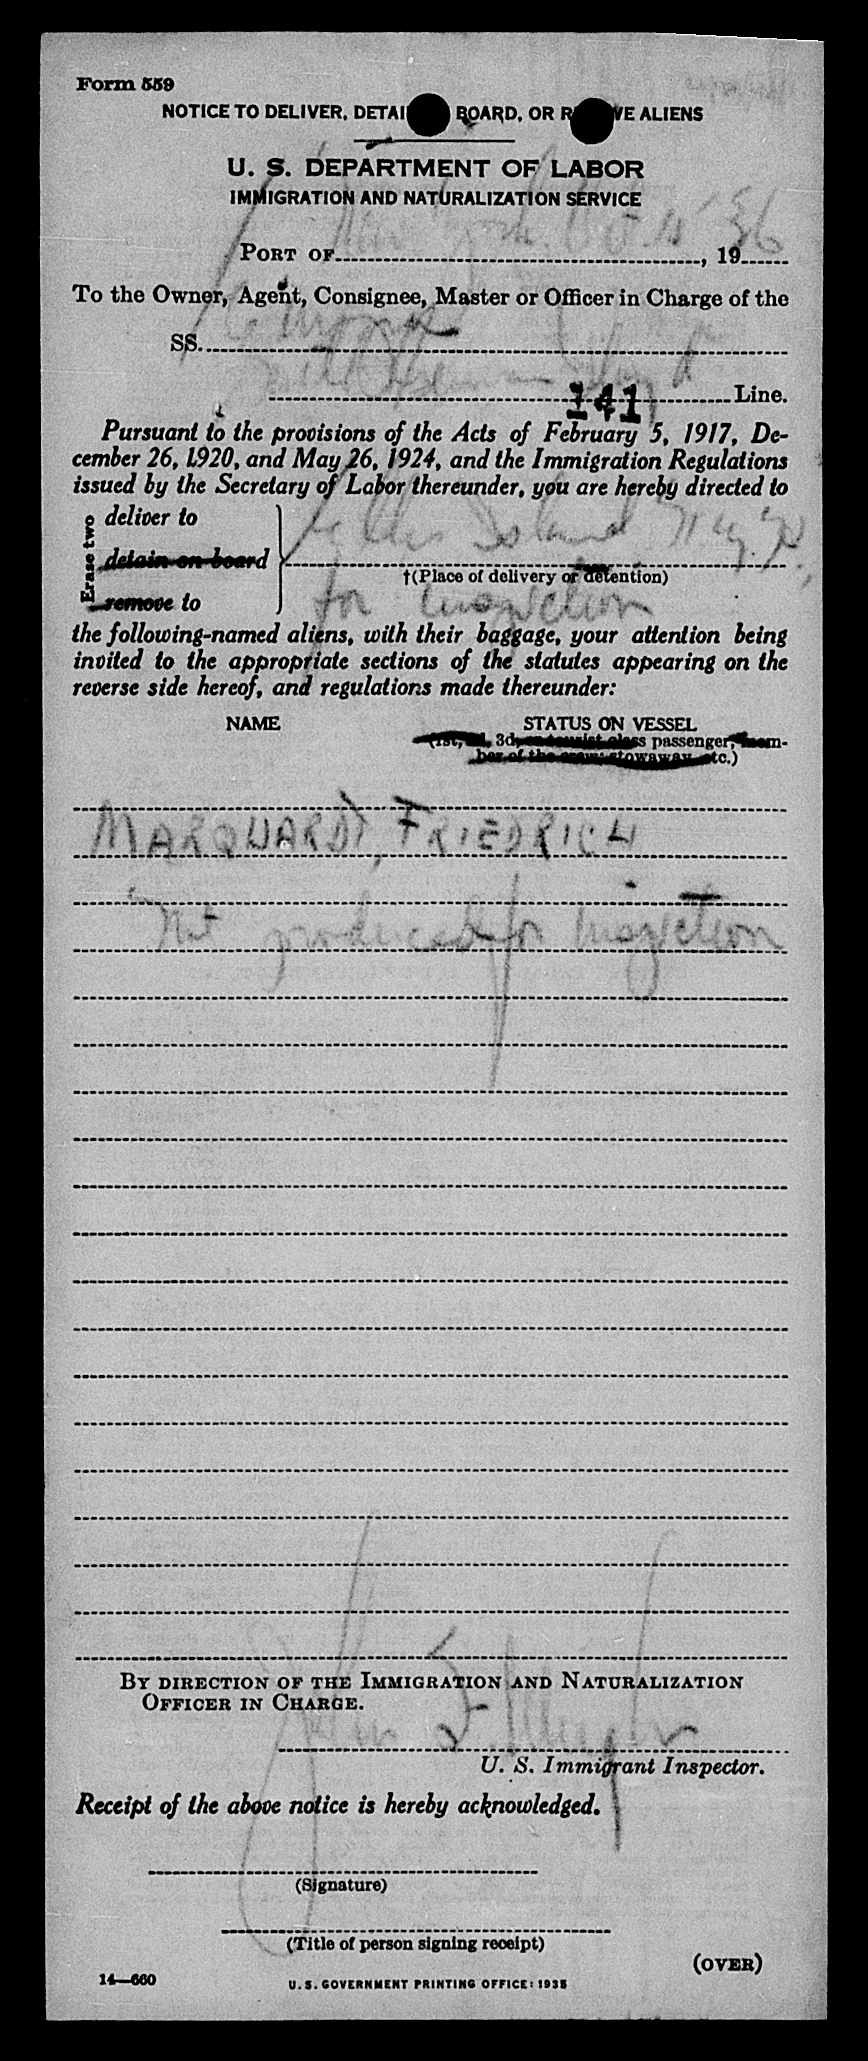 Form 559
NOTICE TO DELIVER, DETAI BOARD, OR R VE ALIENS
U. S. DEPARTMENT OF LABOR
IMMIGRATION AND NATURALIZATION SERVICE
PORT OF New York, , 1936
To the Owner, Agent, Consignee, Master or Officer in Charge of the
SS. Europa
141 Line.
Pursuant to the provisions of the Acts of February 5, 1917, De-
cember 26, 1920, and May 26, 1924, and the Immigration Regulations
issued by the Secretary of Labor thereunder, you are hereby directed to
Erase two
deliver to
detain on board
remove to
Ellis Island N.Y.
†(Place of delivery or detention)
for inspection
the following-named aliens, with their baggage, your attention being
invited to the appropriate sections of the statutes appearing on the
reverse side hereof, and regulations made thereunder:
NAME STATUS ON VESSEL
(1st, 3d, or tourist class passenger, mem-
ber of the crew, stowaway, etc.)
MARQUARDT, FRIEDRICH
Not produced for inspection
BY DIRECTION OF THE IMMIGRATION AND NATURALIZATION
OFFICER IN CHARGE.
John
U. S. Immigrant Inspector.
Receipt of the above notice is hereby acknowledged.
(Signature)
(Title of person signing receipt)
(OVER)
14—660 U. S. GOVERNMENT PRINTING OFFICE: 1935